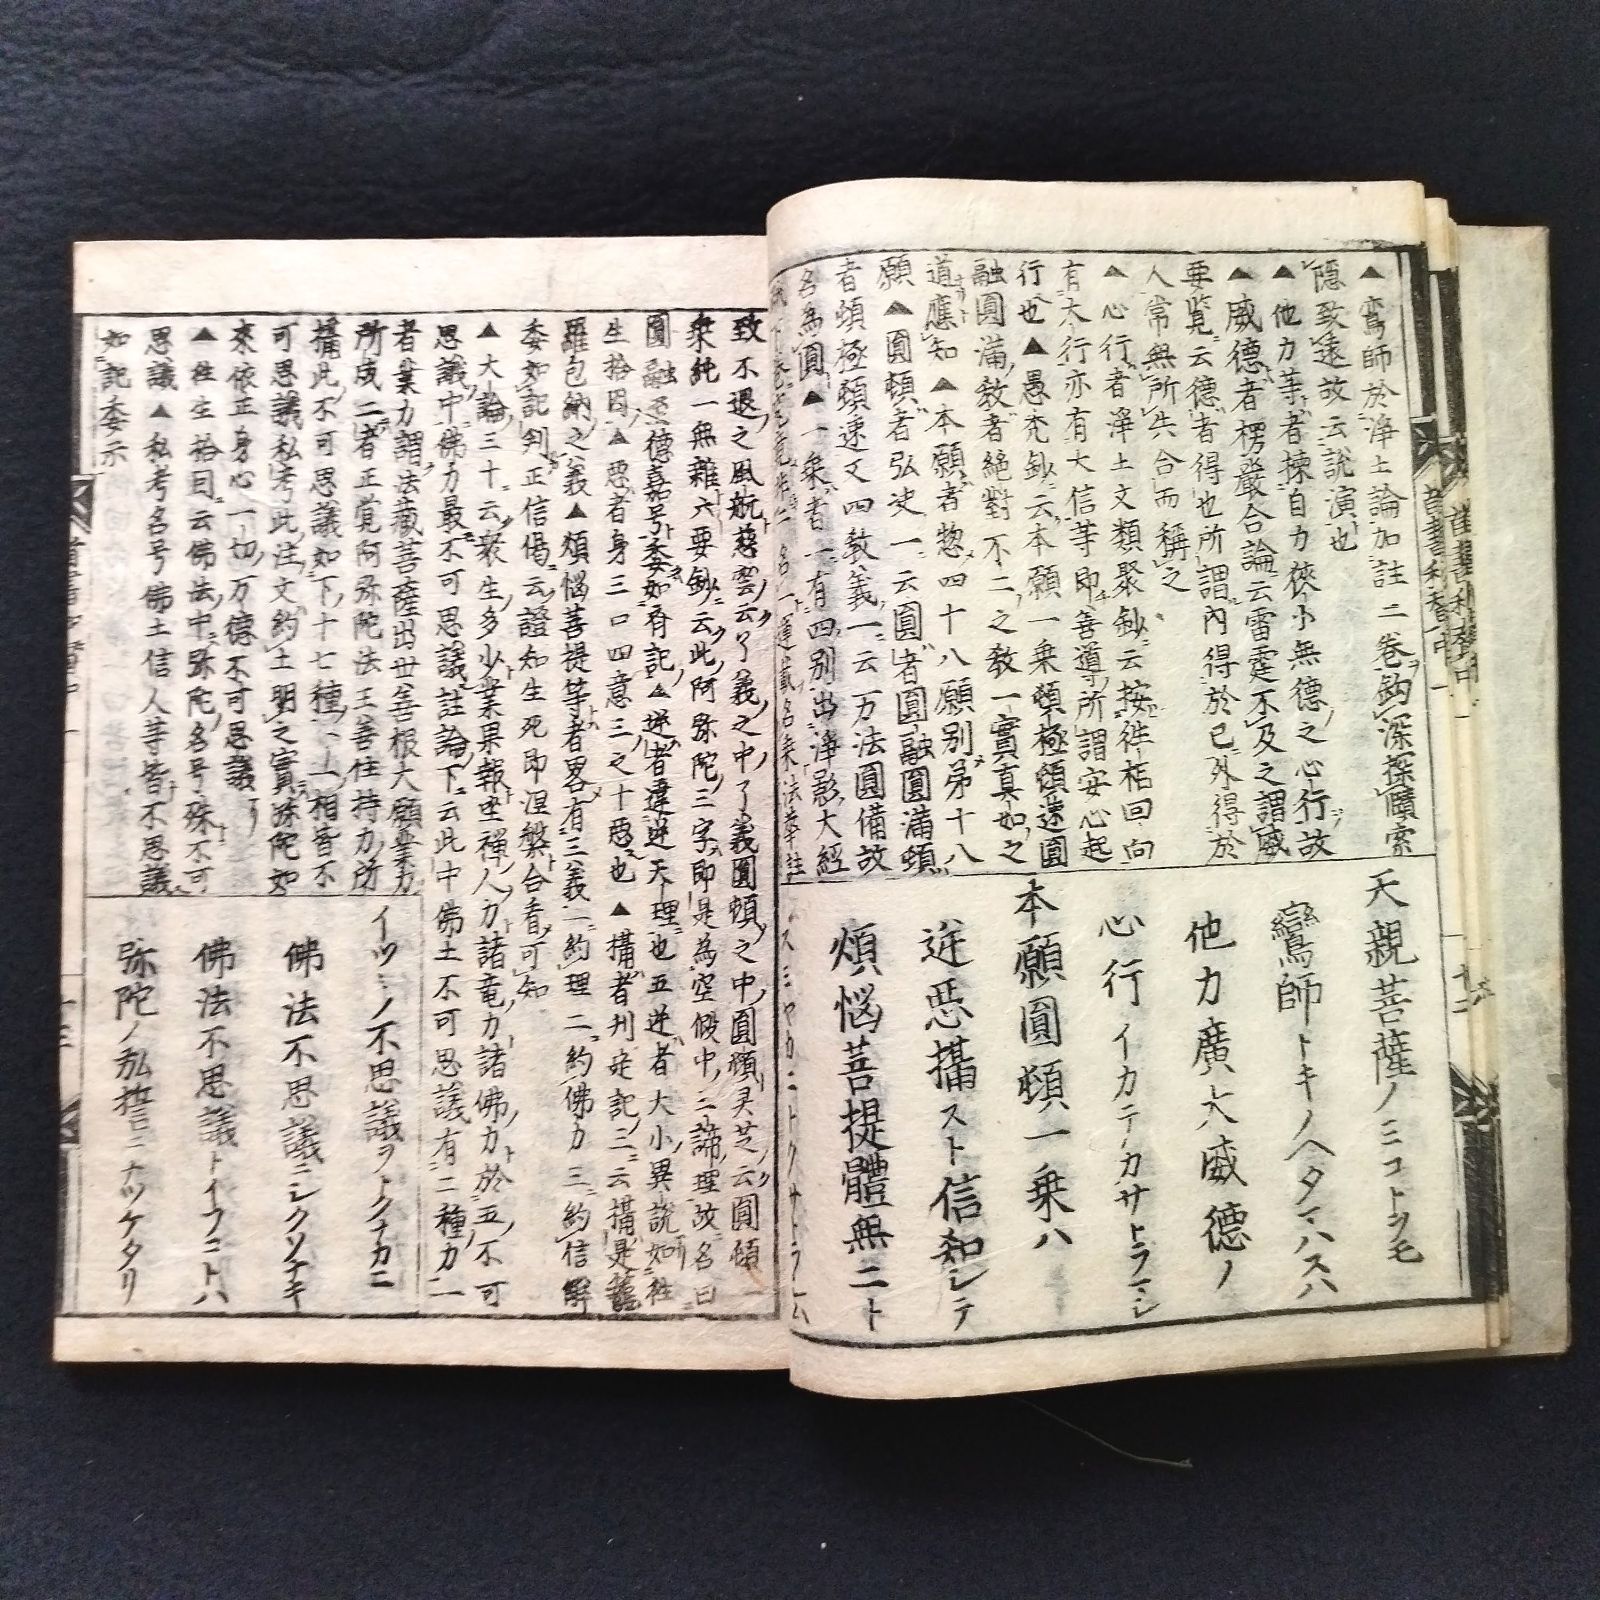 ▲鸞師於浄土論加註二巻鈎深探賾索
隠致遠故云説演也
▲他力等者揀自力狹小無德之心行故
▲威德者楞嚴合論云雷霆不及之謂威
要覧云德者得也所謂內得於己外得於
人常無所失合而稱之
▲心行者浄土文類聚鈔云按往相回向
有大行亦有大信等即善導所謂安心起
行也▲愚禿鈔云本願一乗頓極頓速圓
融圓滿教者絶對不二之教一實真如之
道應知▲本願者惣四十八願別弟十八
願▲圓頓者弘决一云圓者圓融圓滿頓
者頓極頓速又四教義一云万法圓備故
名為圓▲一乗者一有四別出浄影大経
天親菩薩ノミコトヲモ
鸞師トキノヘタマハスハ
他力廣大威德ノ
心行イカテカサトラマシ
本願圓頓一乗ハ
逆惡攝スト信知シテ
煩悩菩提體無二ト
スミヤカニトクサトラム
致不退之風航慈雲云了義之中了義圓頓之中圓頓灵芝云圓頓一
乗純一無雜六要鈔云此阿弥陀三字即是為空假中三諦理故名曰
圓融至德嘉号委如有記▲逆者違逆天理也五逆者大小異説如往
生拾因▲惡者身三口四意三之十惡也▲攝者刊定記三云攝是
羅包納之義▲煩悩菩提等者畧有三義一約理二約佛力三約信解
委如記判正信偈云證知生死即涅槃合看可知
▲大論三十云衆生多少業果報坐禪人力諸竜力諸佛力於五不可
思議中佛力最不可思議註論下云此中佛土不可思議有二種力一
者業力謂法蔵菩薩出世善根大願業力
所成二者正覚阿弥陀法王善住持力所
攝此不可思議如下十七種一一相皆不
可思議私考此注文約土明之實弥陀如
來依正身心一切万德不可思議
▲往生拾因云佛法中弥陀名号殊不可
思議▲私考名号佛土信人等皆不思議
如記委示
イツヽノ不思議ヲトクナカニ
佛法不思議ニシクソナキ
佛法不思議トイフコトハ
弥陀ノ弘誓ニナツケタリ